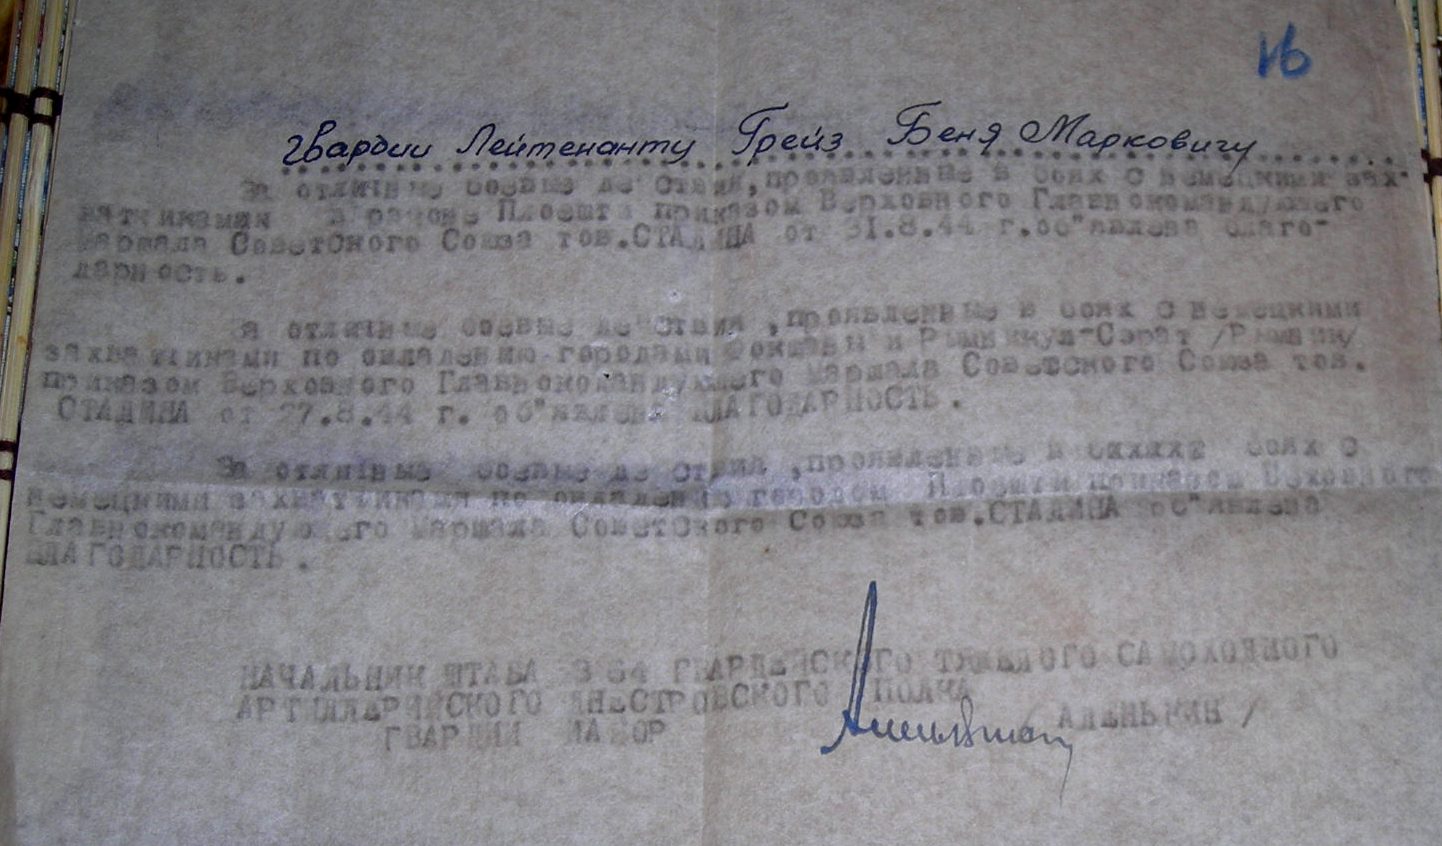 16
гвардии Лейтенанту Грейз Беня Марковичу
За отличные боевые действия, проявленные в боях с немецкими зах-
ватчиками в районе Плоешти приказом Верховного Главнокомандующего
маршала Советского Союза тов.СТАЛИНА от 31.8.44 г.об"явлена благо-
дарность.
За отличные боевые действия ,проявленные в боях с немецкими
захватчиками по овладению городами Фокшаны и Рымникул-Сэрат /Рымник/
приказом Верховного Главнокомандующего маршала Советского Союза тов.
СТАЛИНА от 27.8.44 г. об"явлена БЛАГОДАРНОСТЬ.
За отличные боевые действия ,проявленные в боях с
немецкими захватчиками по овладению городом Плоешти приказом Верховного
Главнокомандующего маршала Советского Союза тов.СТАЛИНА об"явлена
БЛАГОДАРНОСТЬ.
НАЧАЛЬНИК ШТАБА 364 ГВАРДЕЙСКОГО ТЯЖЕЛОГО САМОХОДНОГО
АРТИЛЛЕРИЙСКОГО ДНЕСТРОВСКОГО ПОЛКА
ГВАРДИИ МАЙОР / АЛЕНЬКИН /